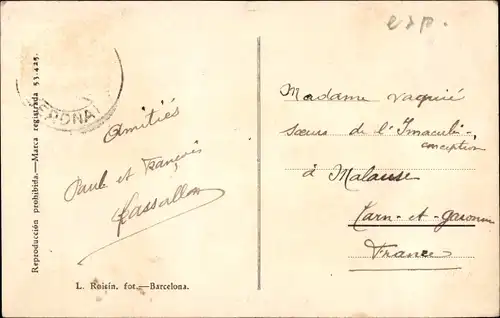 exp.
GERONA
Reproducción prohibida.—Marca registrada 53.425.
Amitiés
Paule et François
Cassallon
L. Roisin, fot.—Barcelona.
Madame Vaquié
sœurs de l'Imaculé-
conception
à Malause
Tarn-et-garonne
France